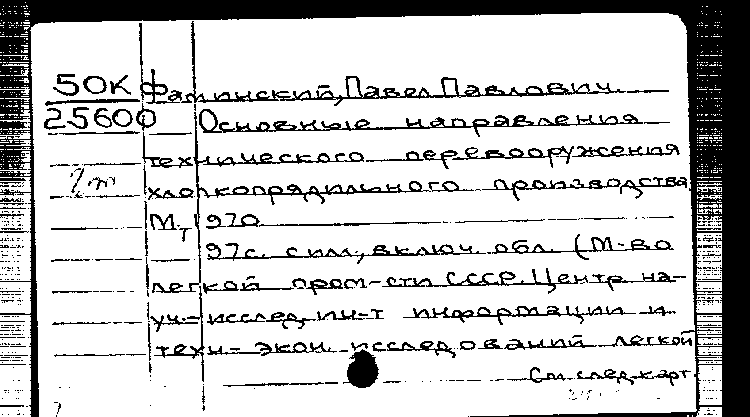 50К Фаминский, Павел Павлович.
25600 Основные направления
технического перевооружения
2т хлопкопрядильного производства
М., 1970
97с. с илл., включ. обл. (М-во
легкой пром-сти СССР. Центр. на-
уч.-исслед. ин-т информации и
техн.-экон. исследований легкой
См. след. карт.